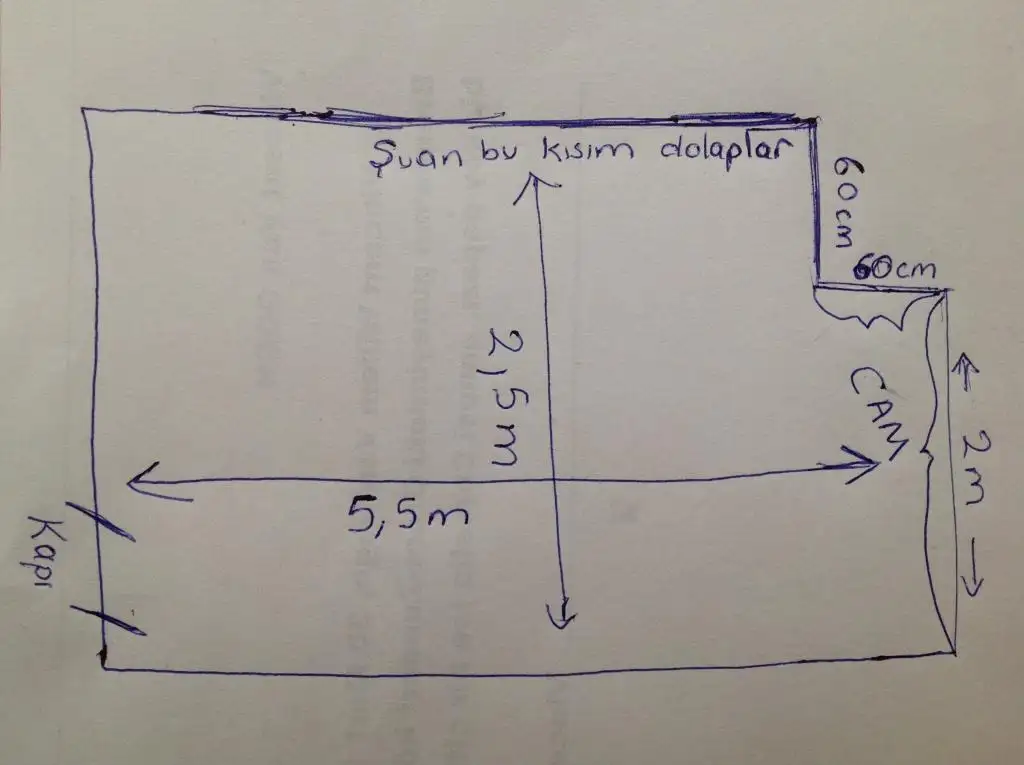 Şuan bu kısım dolaplar
60cm
60cm
2,5m
CAM
2m
5,5m
Kapı